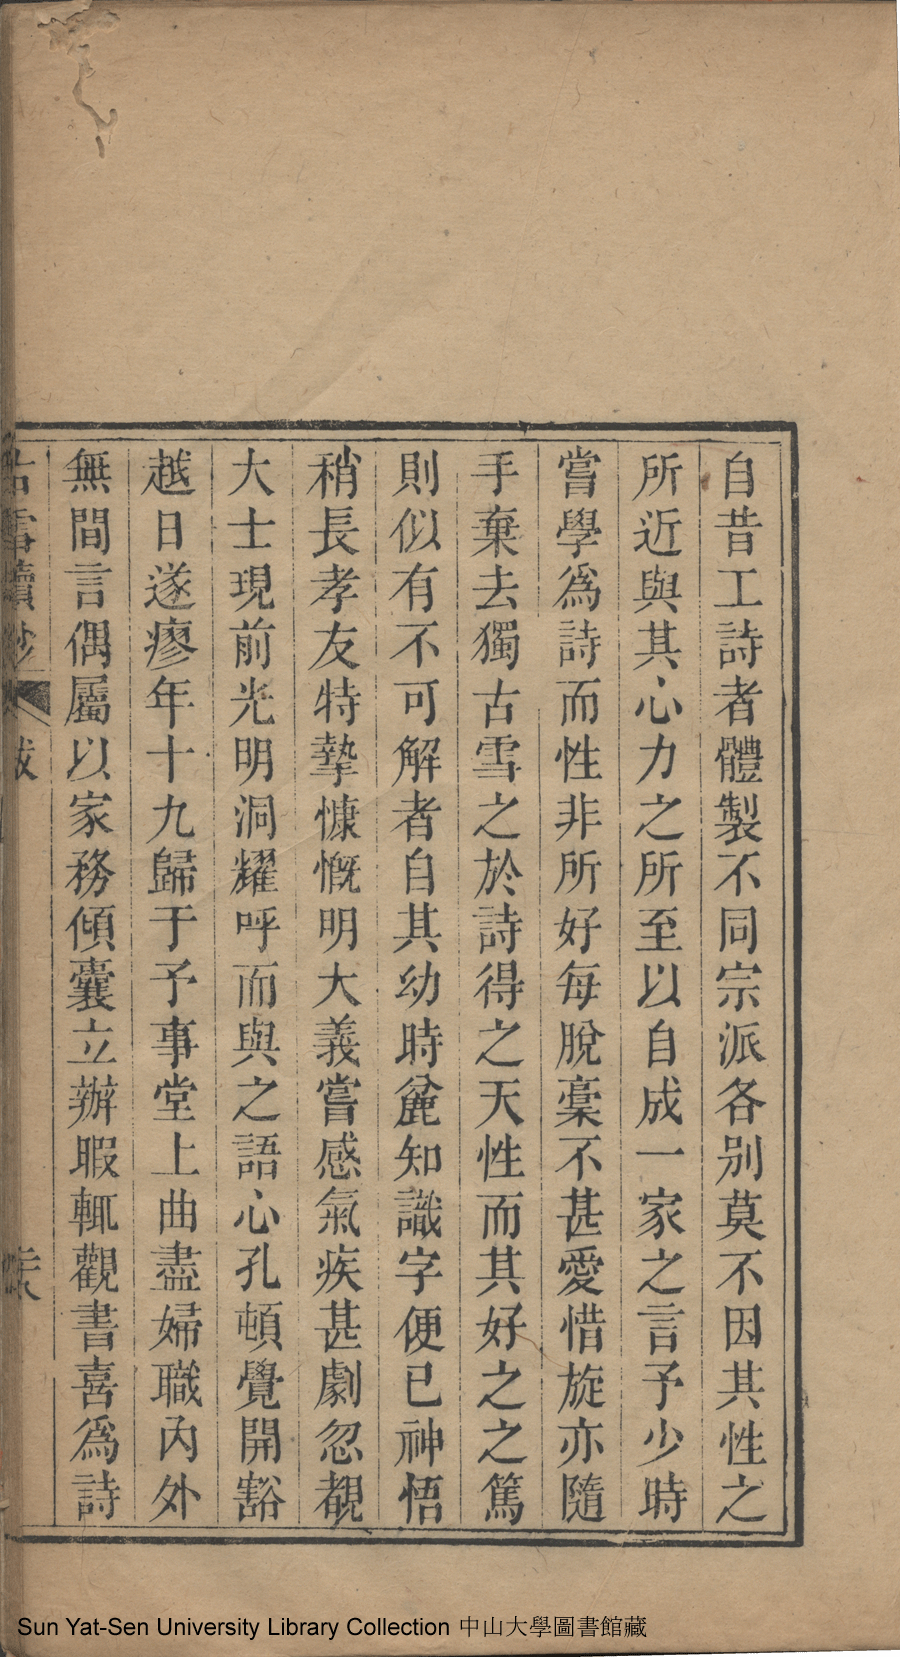 自昔工詩者體製不同宗派各別莫不因其性之
所近與其心力之所至以自成一家之言予少時
嘗學爲詩而性非所好每脫稾不甚愛惜旋亦隨
手棄去獨古雪之於詩得之天性而其好之之篤
則似有不可解者自其幼時麄知識字便已神悟
稍長孝友特摯慷慨明大義嘗感氣疾甚劇忽覩
大士現前光明洞耀呼而與之語心孔頓覺開豁
越日遂瘳年十九歸于予事堂上曲盡婦職內外
無間言偶屬以家務傾囊立辦暇輒觀書喜爲詩
古雪續鈔 跋
Sun Yat-Sen University Library Collection 中山大學圖書館藏